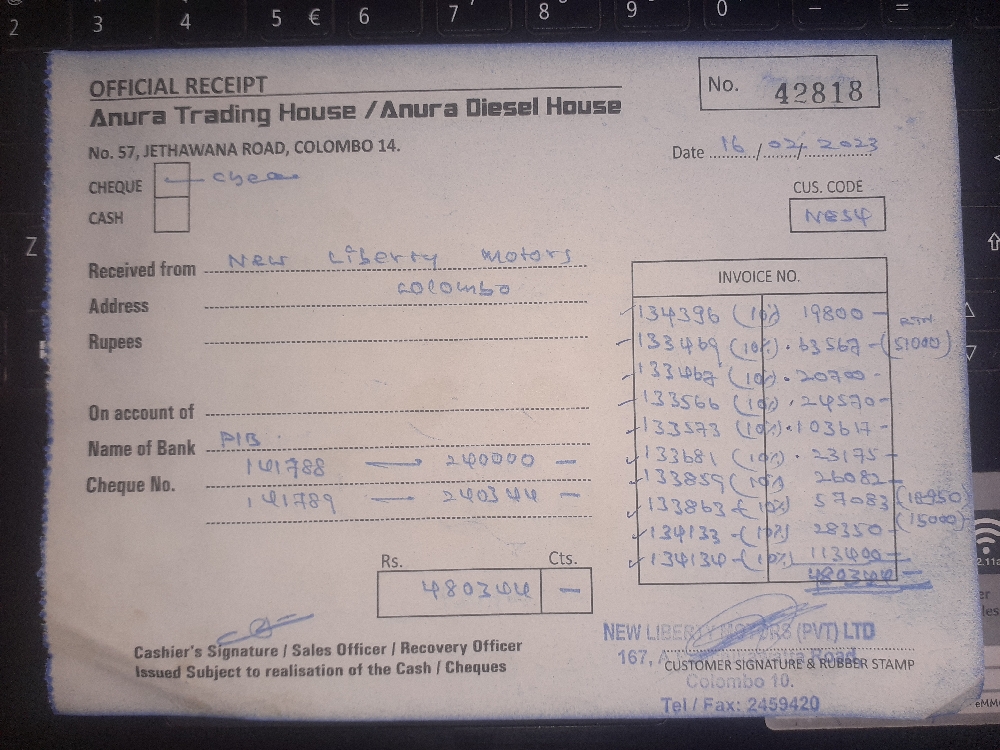 OFFICIAL RECEIPT
No. 42818
Anura Trading House / Anura Diesel House
No. 57, JETHAWANA ROAD, COLOMBO 14.
Date 16/02/2023
CHEQUE
CASH
CUS. CODE
NES4
Received from New Liberty Motors
Address Colombo
Rupees
On account of
Name of Bank PIB
Cheque No. 141788 240000 –
141789 240344 –
INVOICE NO.
134396 (10%) 19800 –
133469 (10%) 63567 – (51000)
133462 (10%) 20700 –
133566 (10%) 24570 –
133573 (10%) 103617 –
133681 (10%) 23175 –
133859 (10%) 26082 –
133863 – (10%) 57083 (18950)
(15000)
134133 – (10%) 28350 –
134134 – (10%) 113400 –
480344 –
Rs. Cts.
480344 –
Cashier's Signature / Sales Officer / Recovery Officer
Issued Subject to realisation of the Cash / Cheques
NEW LIBERTY MOTORS (PVT) LTD
167, Road
CUSTOMER SIGNATURE & RUBBER STAMP
Colombo 10.
Tel / Fax: 2459420